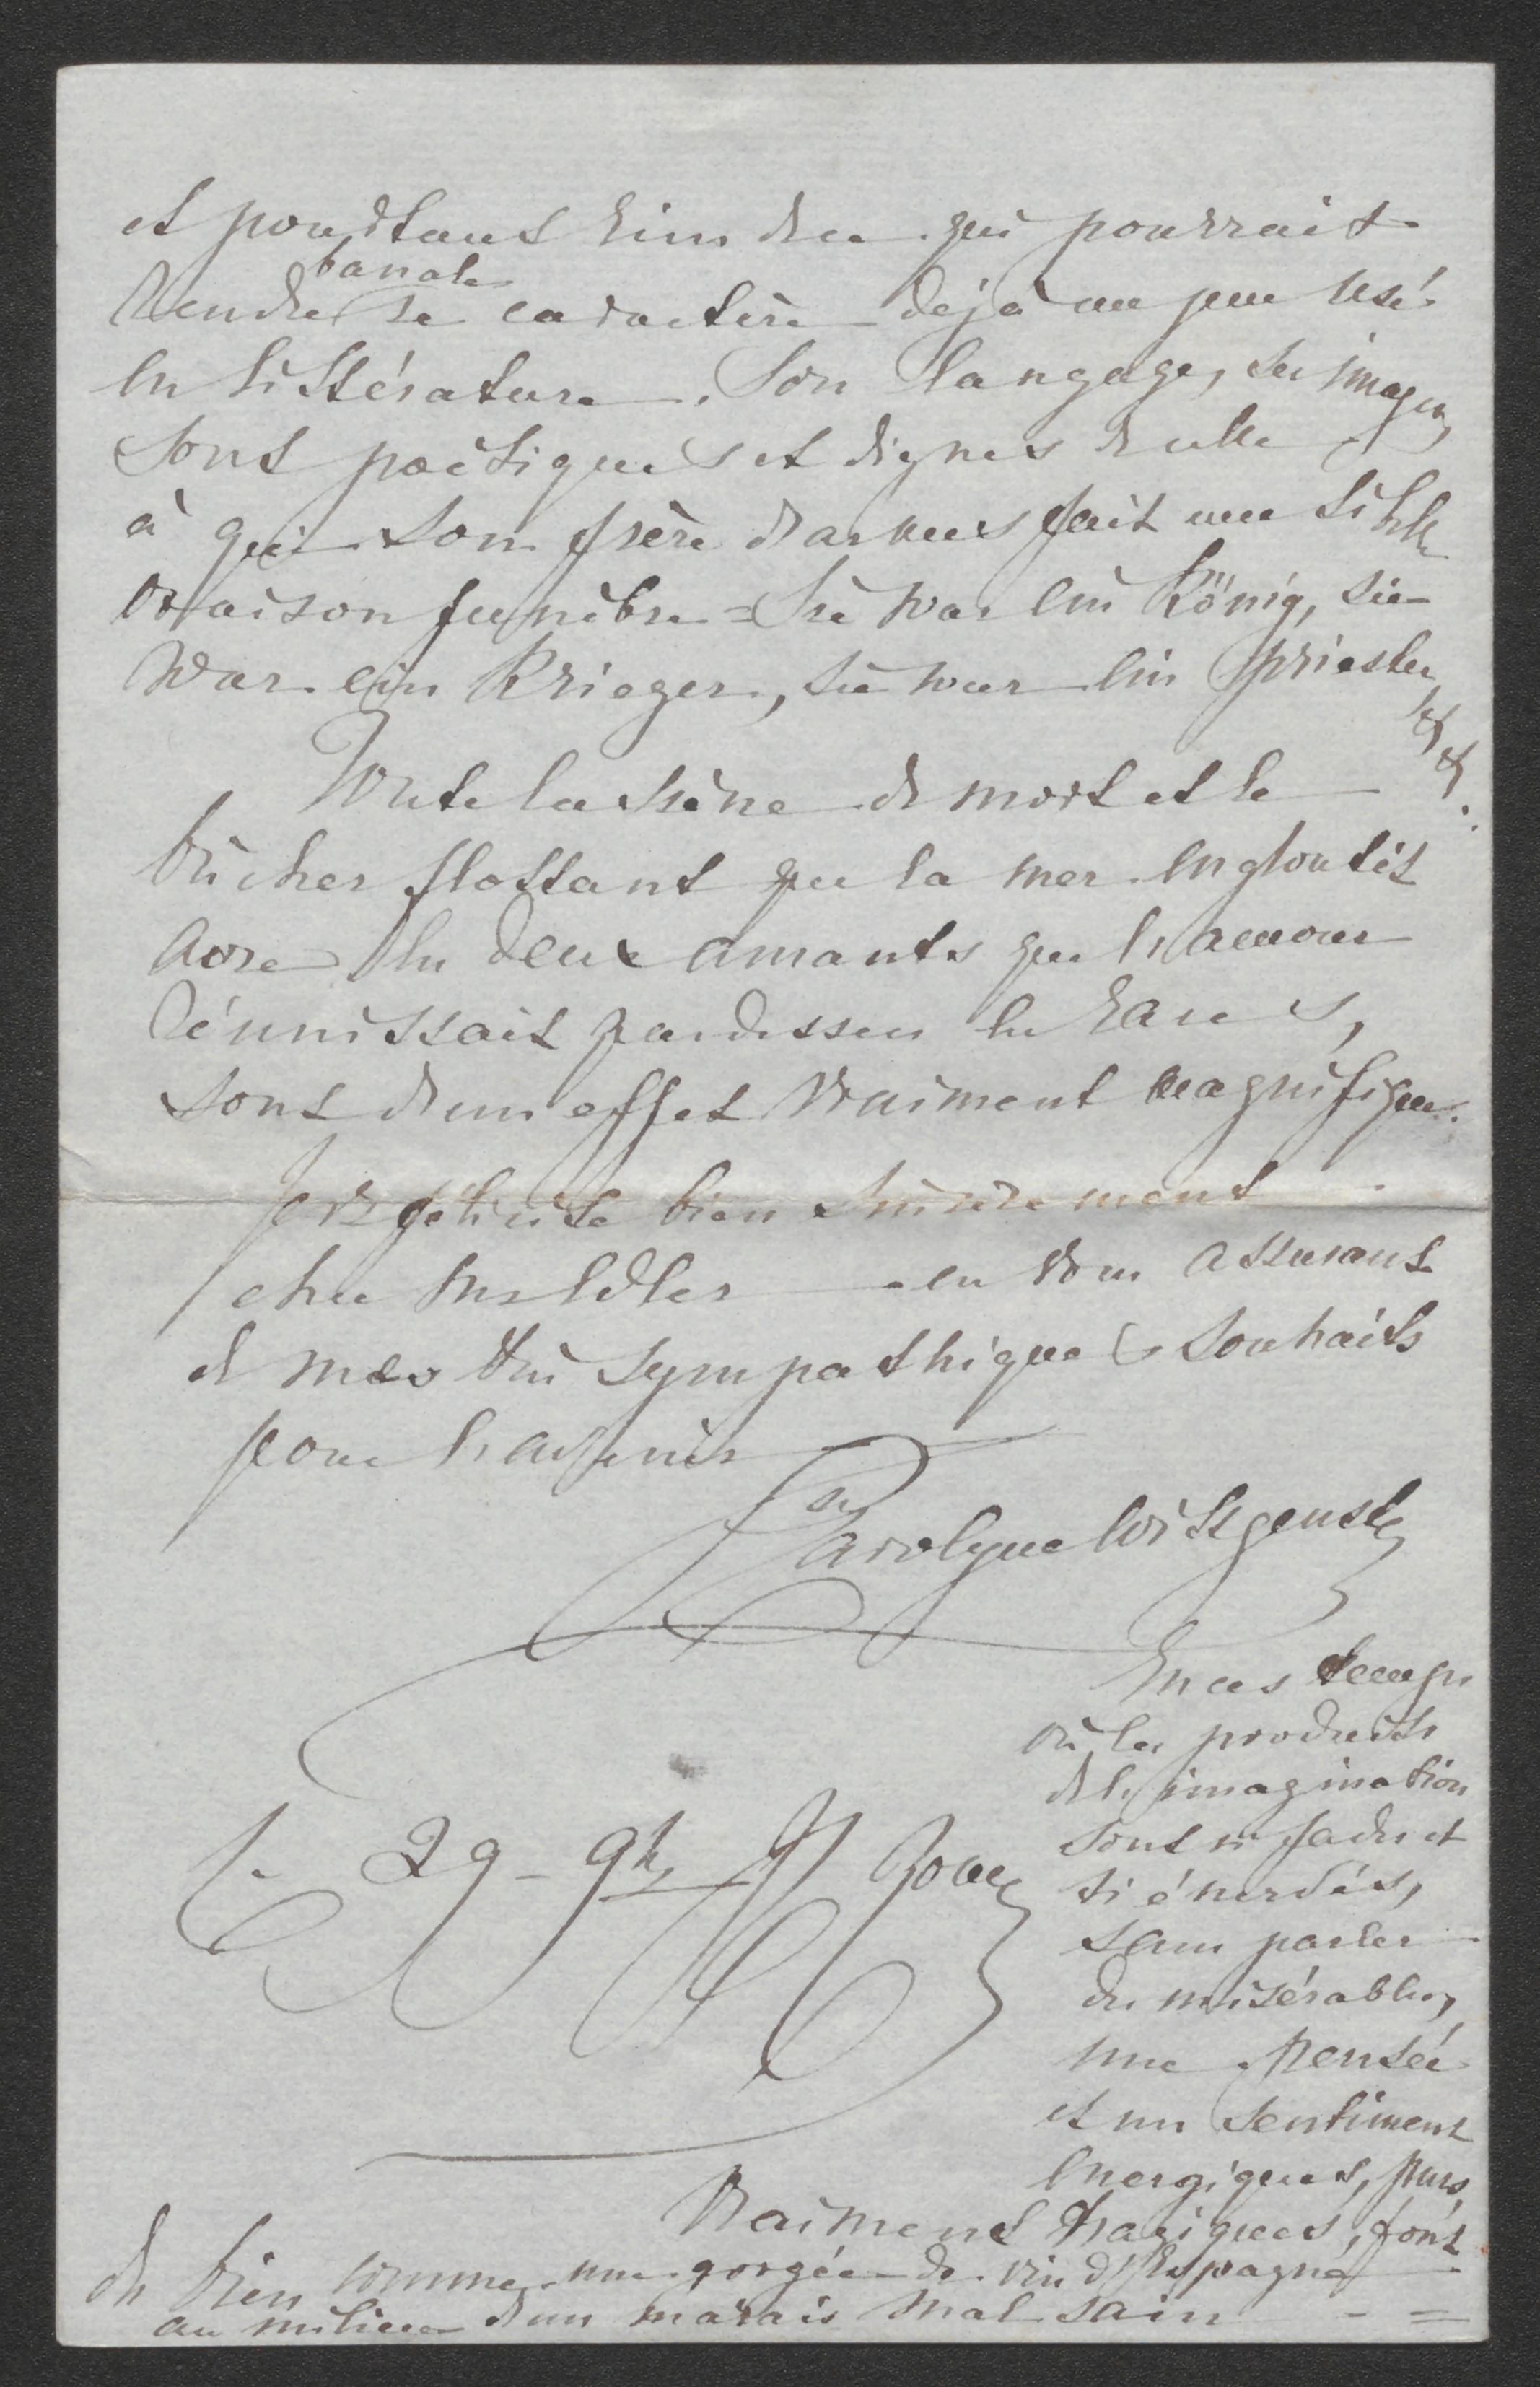 et pourtant rien de ce qui pourrait
rendre banale le caractère déjà un peu usé
en littérature. Son langage, ses images
sont poëtiques et dignes de celle
à qui son frère d'armes fait une si belle
oraison funèbre = Sie war ein König, sie
war ein Krieger, sie war ein Priester
& &.
Toute la scène de mort et le
bûcher flottant que la mer engloutit
avec les deux amants que l'amour
réunissait pardessus les races,
sont d'un effet vraiment magnifique.
félicite bien sincèrement
cher en vous assurant
de mes très sympathiques souhaits
pour l'avenir
Carolyne Wittgenstein
En ces temps
où les produits
de l'imagination
sont si fades et
si énervés,
sans parler
des misérables,
une pensée
et un sentiment
énergiques, purs,
vraiment tragiques, font
du bien comme une gorgée de vin d'Espagne
au milieu d'un marais mal sain - =
le 29 - 9b Rome